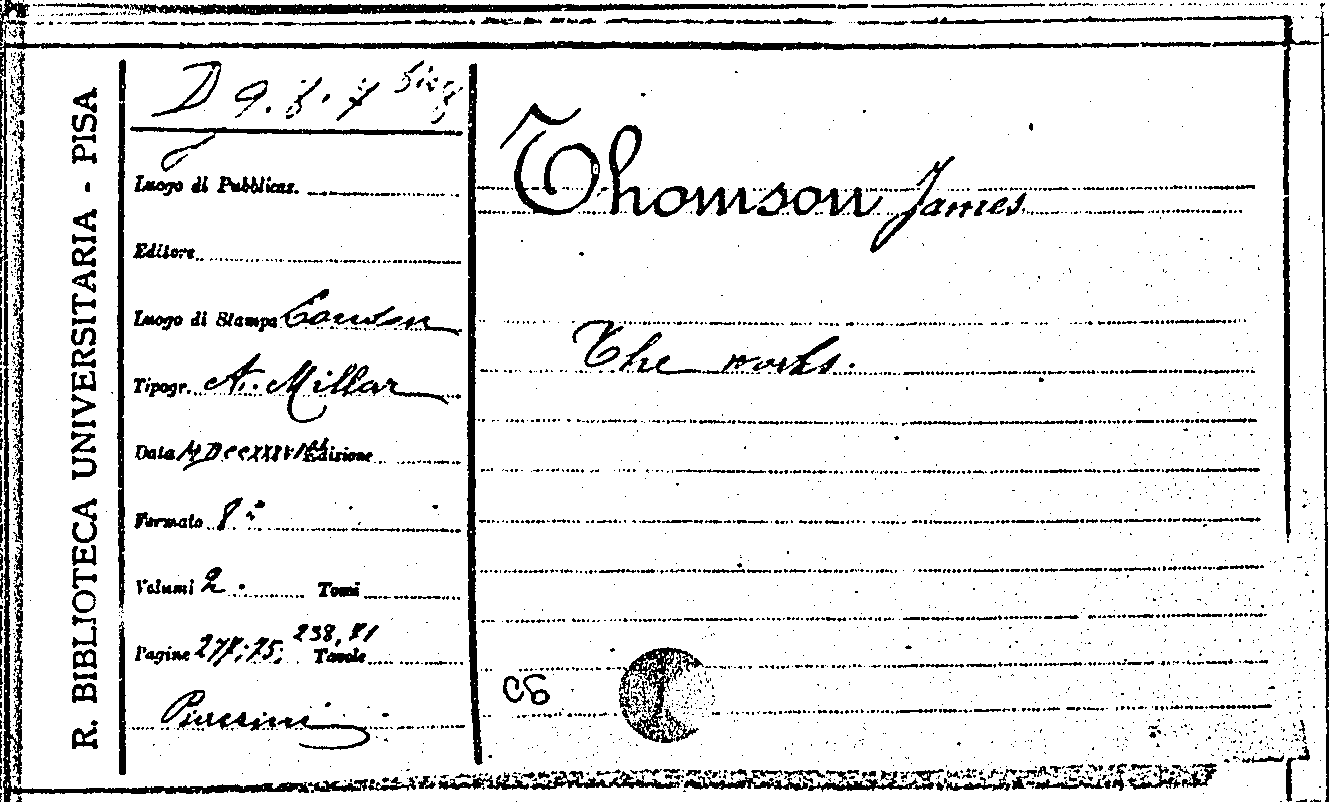 R. BIBLIOTECA UNIVERSITARIA - PISA
D 9. 8. 7
Luogo di Pubblicaz.
Editore
Luogo di Stampa London
Tipogr. A. Millar
Data Edizione
Formato 8°
Volumi 2. Tomi
Pagine Tavole
Thomson James
The works.